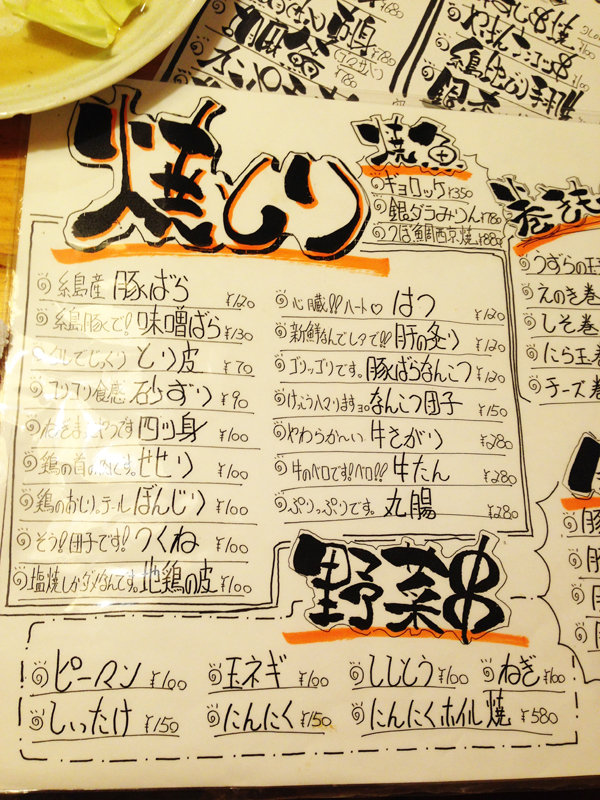 焼とり
糸島産 豚ばら ¥120
糸島豚くで! 味噌ばら ¥130
とり皮 ¥70
コリコリ食感 砂ずり ¥90
四ツ身 ¥100
鶏の首の肉です。せせり ¥100
鶏のおしり。テール ぼんじり ¥100
そう!団子です! つくね ¥100
塩焼しかダメなんです。地鶏の皮 ¥100
心臓!!ハート♡ はつ ¥120
新鮮なんでレアで!! 肝の炙り ¥120
ゴリッゴリです。豚ばらなんこつ ¥120
けっこうハマりますョ。なんこつ団子 ¥150
やわらか〜い 牛さがり ¥280
牛のベロです!ベロ!! 牛たん ¥280
ぷりっぷりです。丸腸 ¥280
焼魚
ギョロッケ ¥350
銀ダラみりん ¥780
つぼ鯛西京焼 ¥880
うずらの玉
えのき巻
しそ巻
にら玉巻
チーズ巻
野菜串
ピーマン ¥100
玉ネギ ¥100
ししとう ¥100
ねぎ ¥100
しいたけ ¥150
にんにく ¥150
にんにくホイル焼 ¥580